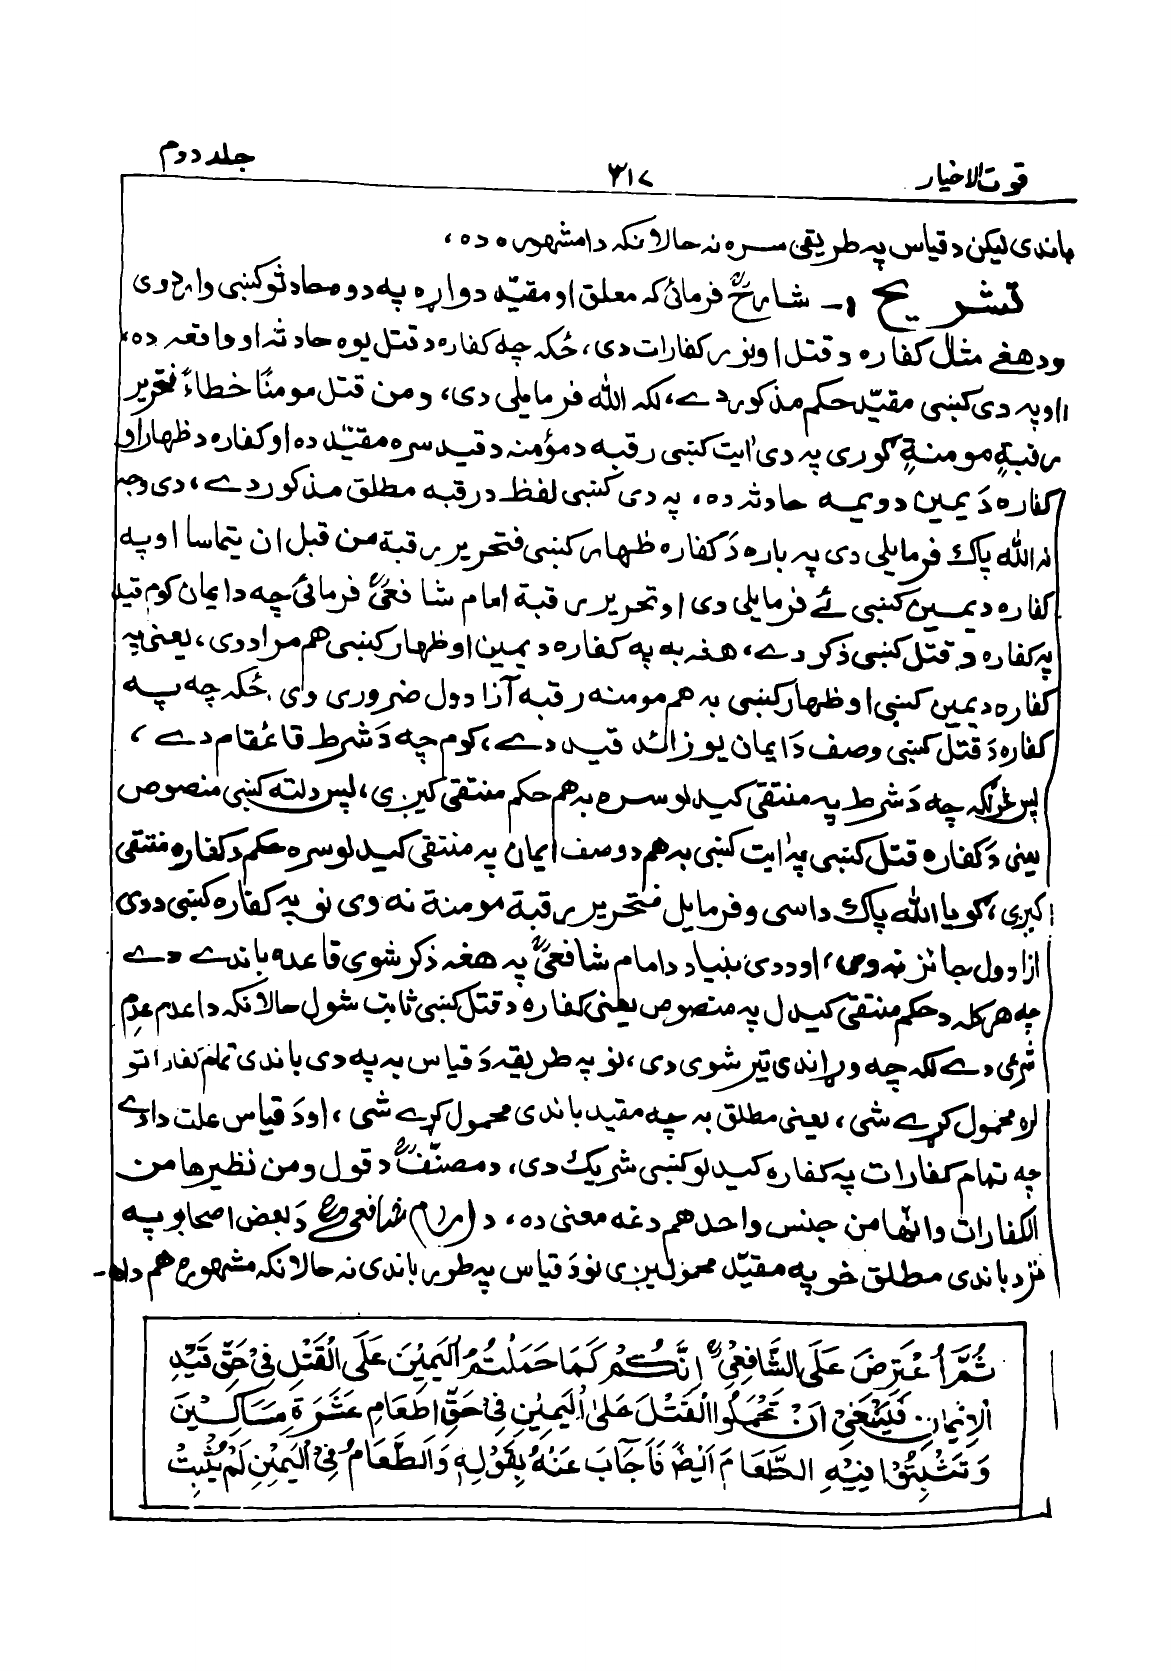 قوت الاخیار ۳۱۷ جلد دوم
باندی لیکن د قیاس په طریقی سره نه حالانکه دا مشهوره ده،
تشریح :- شارحؒ فرمائی که معلق او مقیّد دواړه په دو محادثو کښی وارد وی
ودهغے مثال کفاره د قتل او نور کفارات دی، ځکه چه کفاره د قتل یوه حادثه او واقعه ده،
او په دی کښی مقیّد حکم مذکور دے، لکه الله فرمایلی دی، ومن قتل مومنًا خطاءً فتحریر
رقبةٍ مومنةٍ ګوری په دی اٰیت کښی رقبه د مؤمنه د قید سره مقیّد ده او کفاره د ظهار او
کفاره دَ یمین دویمه حادثه ده، په دی کښی لفظ د رقبه مطلق مذکور دے، دی وجه
نه الله پاك فرمایلی دی په باره دَ کفاره ظهار کښی فتحریر رقبة من قبل ان یتماسا او په
کفاره د یمین کښی ئے فرمایلی دی او تحریر رقبة امام شافعیؒ فرمائی چه دا یمان کوم قید
په کفاره د قتل کښی ذکر دے، هغه به په کفاره د یمین او ظهار کښی هم مراد دی، یعنی په
کفاره د یمین کښی او ظهار کښی به هم مومنه رقبه آزادول ضروری دی، ځکه چه په
کفاره دَ قتل کښی وصف دَ ایمان یو زائد قید دے، کوم چه دَ شرط قائمقام دے،
پس څرنګه چه دَ شرط په منتقی کیدلو سره به هم حکم منتقی کیږی، پس دلته کښی منصوص
یعنی دَ کفاره قتل کښی په اٰیت کښی به هم د وصف ایمان په منتقی کیدلو سره حکم د کفاره منتقی
کیږی، ګویا الله پاك داسی وفرمایل فتحریر رقبة مومنة نه وی نو په کفاره کښی ددی
ازادول جائز نه وی، او ددی بنیاد د امام شافعیؒ په هغه ذکر شوی قاعده باندے دے
چه هر کله د حکم منتقی کیدل په منصوص یعنی کفاره د قتل کښی ثابت شول حالانکه دا عدم عدم
شرعی دے لکه چه وړاندی تیر شوی دی، نو په طریقه دَ قیاس به په دی باندی تمام کفاراتو
لره محمول کړے شی، یعنی مطلق به چه مقید باندی محمول کړے شی، او دَ قیاس علت دا دے
چه تمام کفارات په کفاره کیدلو کښی شریك دی، د مصنّفؒ د قول ومن نظیرها من
الکفارات وانها من جنس واحد هم دغه معنی ده، د امام شافعیؒ دَ بعض اصحابو په
نزد باندی مطلق خو په مقیّد محمولیږی نو دَ قیاس په طور باندی نه حالانکه مشهوره هم دا ده-
ثُمَّ اُعْتَرِضَ عَلَى الشَّافِعِیْؒ اِنَّكُمْ كَمَا حَمَلْتُمُ الْيَمِيْنَ عَلَى الْقَتْلِ فِیْ حَقِّ قَيْدِ
الْاِيْمَانِ فَيَنْبَغِیْ اَنْ تَحْمِلُوا الْقَتْلَ عَلَى الْيَمِيْنِ فِیْ حَقِّ اِطْعَامِ عَشَرَةِ مَسَاكِيْنَ
وَتَثْبِتُوْا فِيْهِ الطَّعَامَ اَيْضًا فَاَجَابَ عَنْهُ بِقَوْلِهٖ وَالطَّعَامُ فِی الْيَمِيْنِ لَمْ يُثْبِتْ